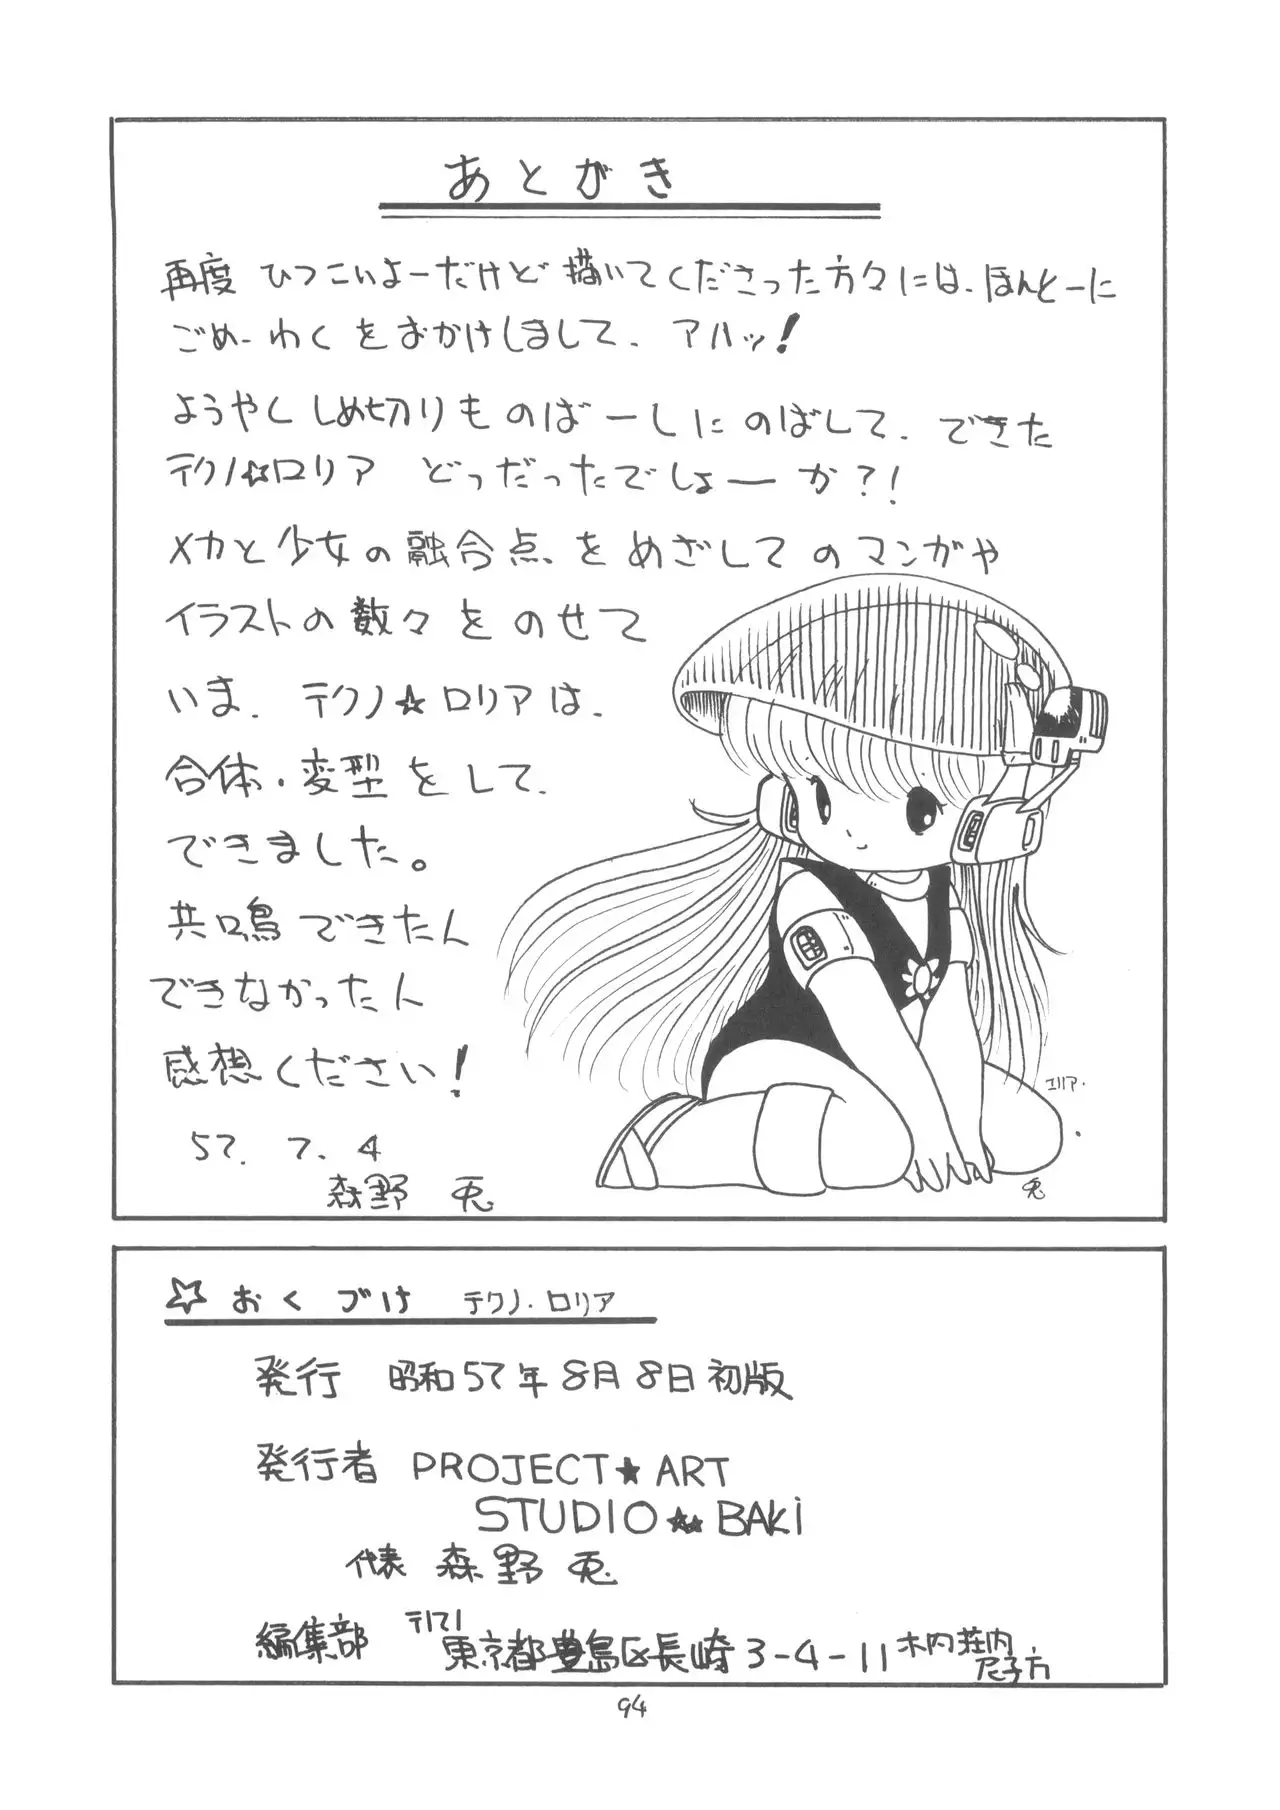 あとがき
再度 ひつこいよーだけど 描いてくださった方々には、ほんとーに
ごめーわくをおかけしまして、アハッ!
ようやくしめ切りものばーしにのばして、できた
テクノ☆ロリア どうだったでしょーか?!
メカと少女の融合点をめざしてのマンガや
イラストの数々をのせて
いま、テクノ☆ロリアは、
合体・変型をして、
できました。
共鳴できたん
できなかったん
感想ください!
57. 7. 4
森野 兎
エリア.
兎
☆ おくづけ テクノ・ロリア
発行 昭和57年8月8日初版
発行者 PROJECT★ART
STUDIO★☆BAKi
代表 森野 兎
編集部 〒171
東京都豊島区長崎3-4-11 木内荘内
94